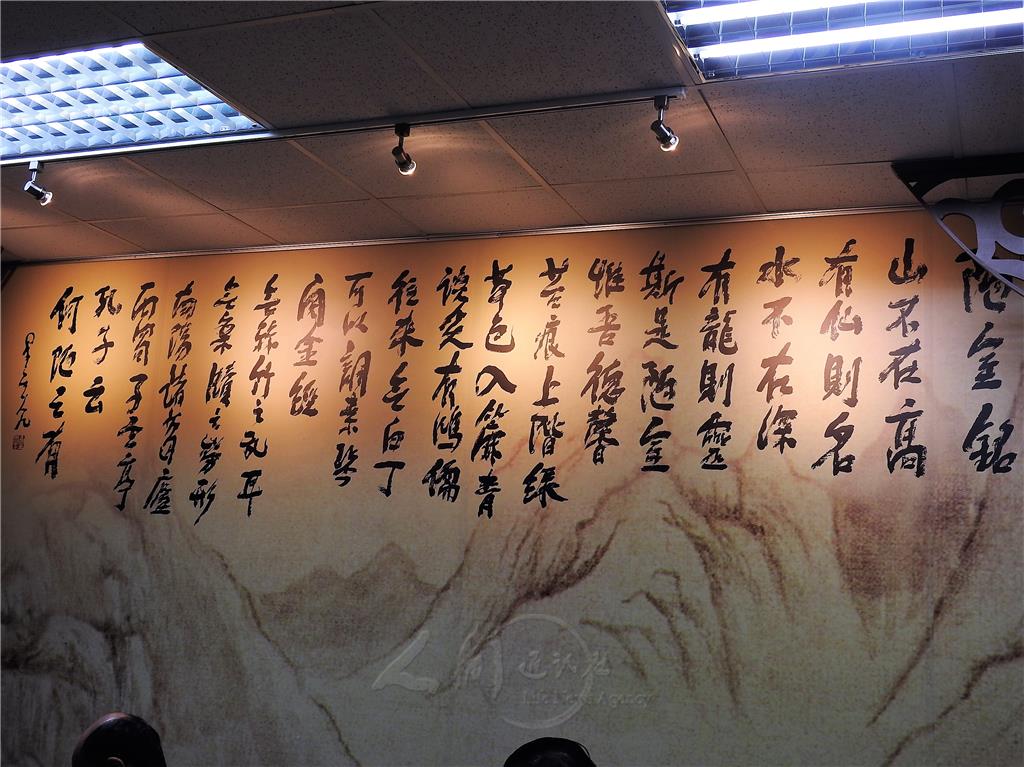 陋室銘
山不在高
有仙則名
水不在深
有龍則靈
斯是陋室
惟吾德馨
苔痕上階綠
草色入簾青
談笑有鴻儒
往來無白丁
可以調素琴
閱金經
無絲竹之亂耳
無案牘之勞形
南陽諸葛廬
西蜀子雲亭
孔子云
何陋之有
人間通訊社
Life News Agency